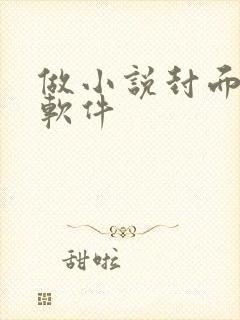 做小說封面
軟件
甜啦